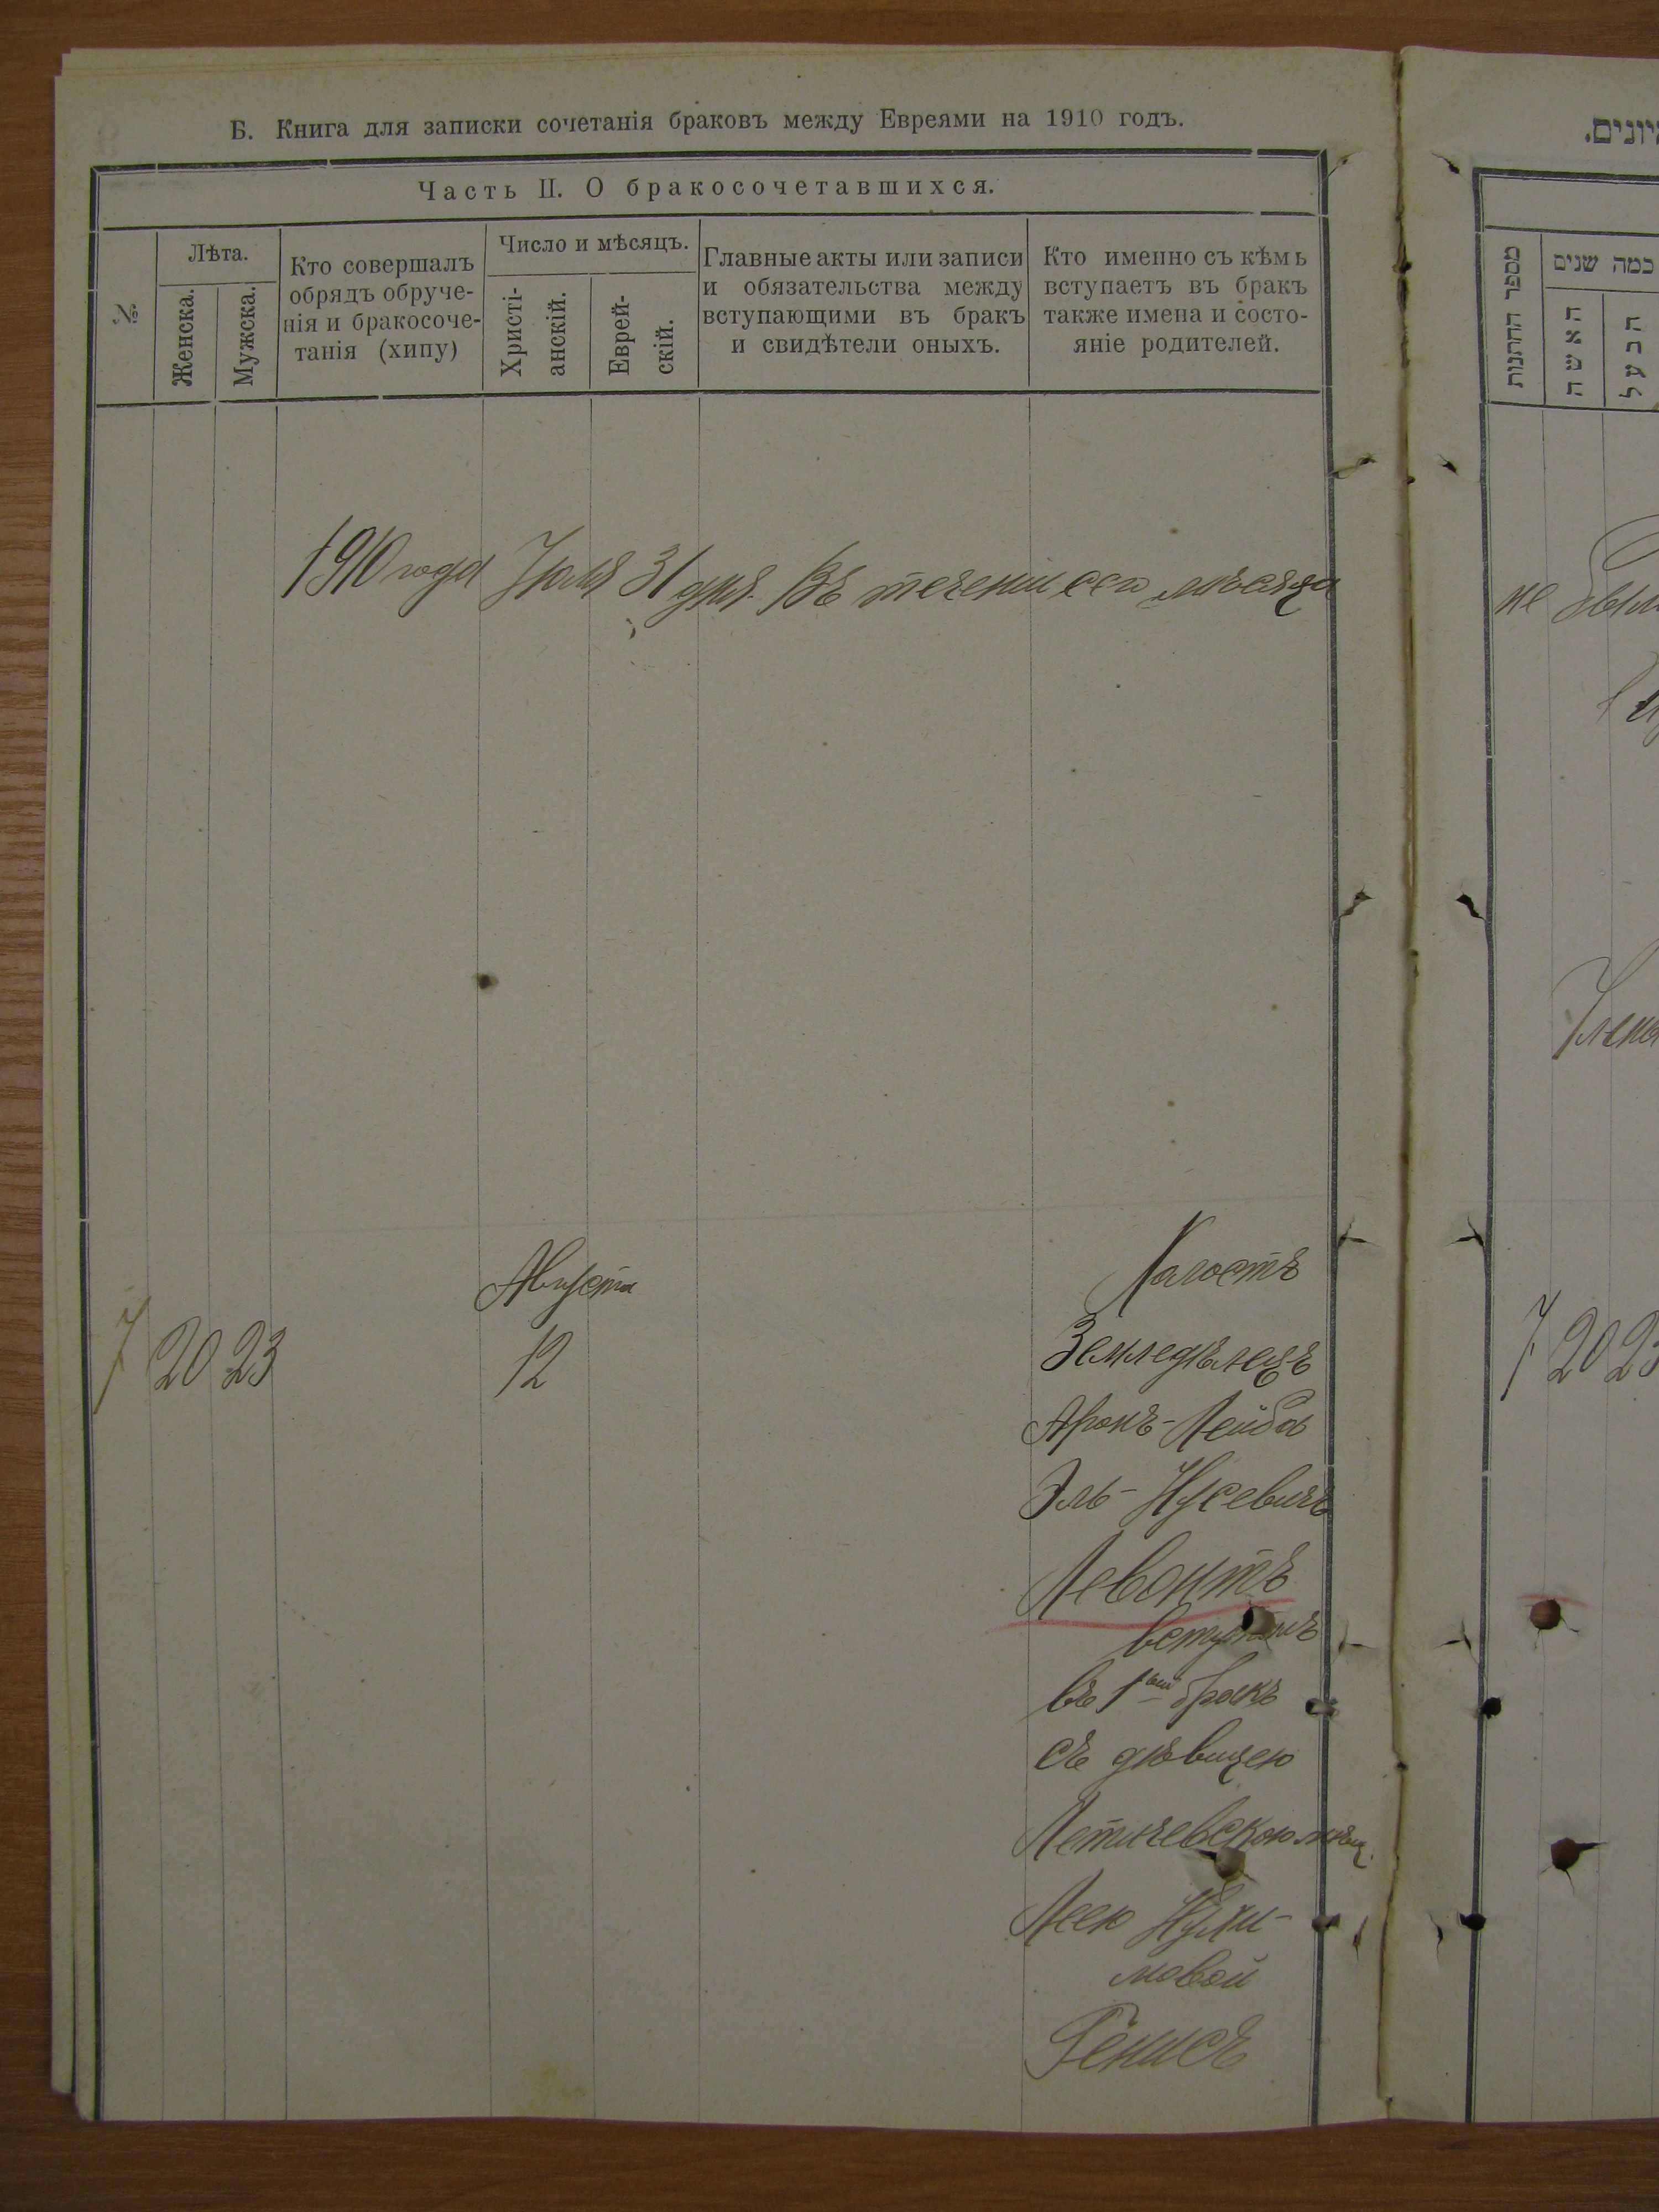 Б. Книга для записки сочетанія браковъ между Евреями на 1910 годъ.
Часть II. О бракосочетавшихся.
№
Лѣта.
Женска.
Мужска.
Кто совершалъ
обрядъ обруче-
нія и бракосоче-
танія (хипу)
Число и мѣсяцъ.
Христі-
анскій.
Еврей-
скій.
Главные акты или записи
и обязательства между
вступающими въ бракъ
и свидѣтели оныхъ.
Кто именно съ кѣмъ
вступаетъ въ бракъ
также имена и состо-
яніе родителей.
1910 года Іюля 31 дня. Въ теченіи сего мѣсяца
Августа
7 20 23 12
Холостъ
Земледѣлецъ
Аронъ-Лейба
Эль-Нусевичъ
Левонтъ
вступилъ
въ 1ый бракъ
съ дѣвицею
Летичевскою мѣщ.
Леею
мовой
מספר החתונות
כמה שנים
האשה
הבעל
не
7 20 23